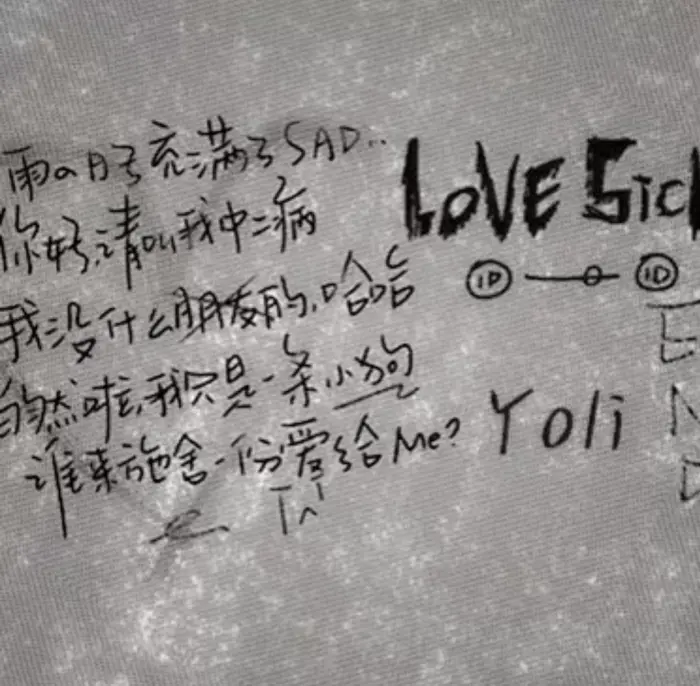 雨の日子充满了SAD..
你好,请叫我中二病
我没什么朋友的,哈哈
自然啦,我只是一条小狗
谁来施舍一份爱给Me?
LOVE Sick
ID ID
Yoli
END